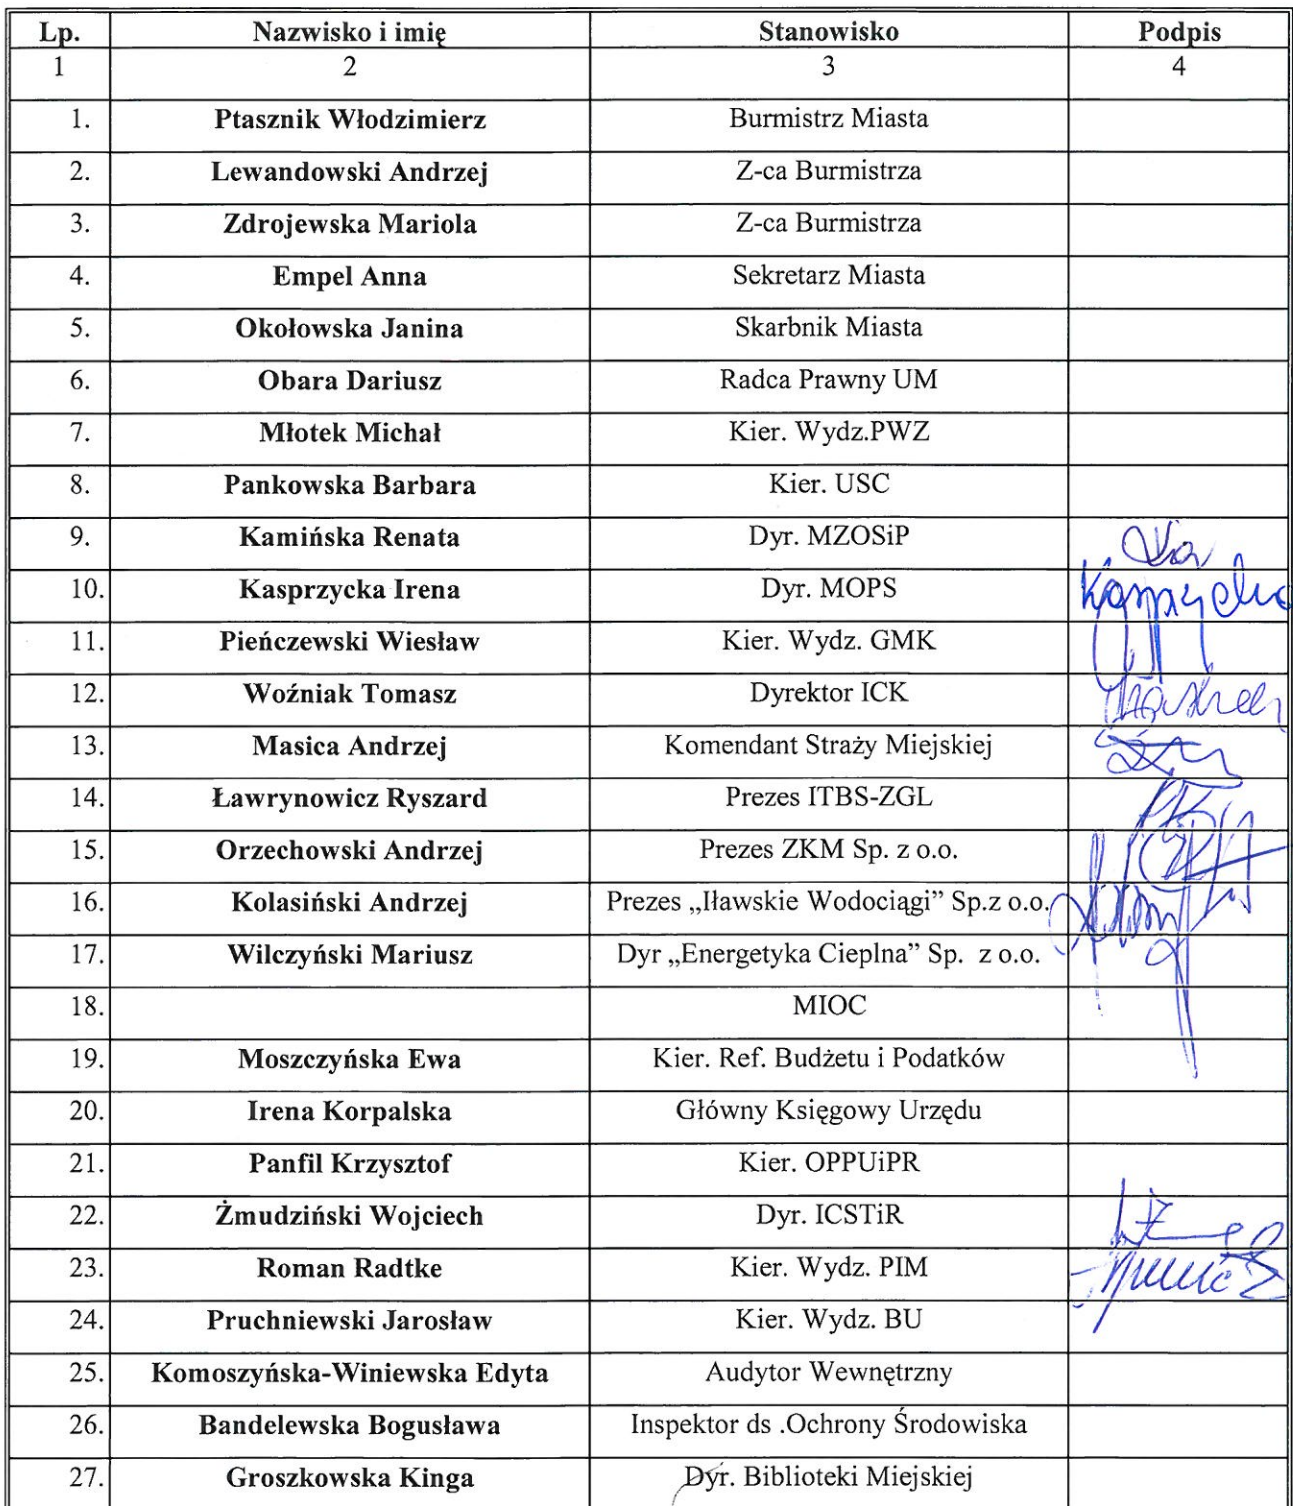 Lp. Nazwisko i imię Stanowisko Podpis
1 2 3 4
1. Ptasznik Włodzimierz Burmistrz Miasta
2. Lewandowski Andrzej Z-ca Burmistrza
3. Zdrojewska Mariola Z-ca Burmistrza
4. Empel Anna Sekretarz Miasta
5. Okołowska Janina Skarbnik Miasta
6. Obara Dariusz Radca Prawny UM
7. Młotek Michał Kier. Wydz.PWZ
8. Pankowska Barbara Kier. USC
9. Kamińska Renata Dyr. MZOSiP
10. Kasprzycka Irena Dyr. MOPS
11. Pieńczewski Wiesław Kier. Wydz. GMK
12. Woźniak Tomasz Dyrektor ICK
13. Masica Andrzej Komendant Straży Miejskiej
14. Ławrynowicz Ryszard Prezes ITBS-ZGL
15. Orzechowski Andrzej Prezes ZKM Sp. z o.o.
16. Kolasiński Andrzej Prezes „Iławskie Wodociągi” Sp.z o.o.
17. Wilczyński Mariusz Dyr „Energetyka Cieplna” Sp. z o.o.
18. MIOC
19. Moszczyńska Ewa Kier. Ref. Budżetu i Podatków
20. Irena Korpalska Główny Księgowy Urzędu
21. Panfil Krzysztof Kier. OPPUiPR
22. Żmudziński Wojciech Dyr. ICSTiR
23. Roman Radtke Kier. Wydz. PIM
24. Pruchniewski Jarosław Kier. Wydz. BU
25. Komoszyńska-Winiewska Edyta Audytor Wewnętrzny
26. Bandelewska Bogusława Inspektor ds .Ochrony Środowiska
27. Groszkowska Kinga Dyr. Biblioteki Miejskiej